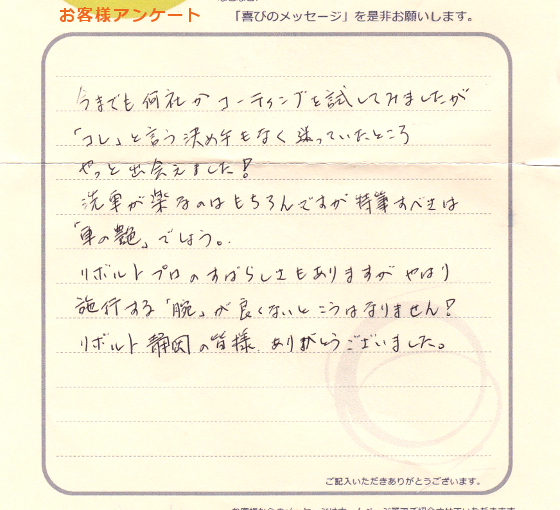 お客様アンケート 「喜びのメッセージ」を是非お願いします。
今までも何社かコーティングを試してみましたが
「コレ」と言う決め手もなく迷っていたところ
やっと出会えました!
洗車が楽なのはもちろんですが特筆すべきは
「車の艶」でしょう。
リボルトプロのすばらしさもありますがやはり
施行する「腕」が良くないとこうはなりません!
リボルト静岡の皆様、ありがとうございました。
ご記入いただきありがとうございます。